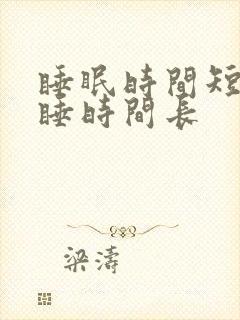 睡眠時間短
睡時間長
梁濤